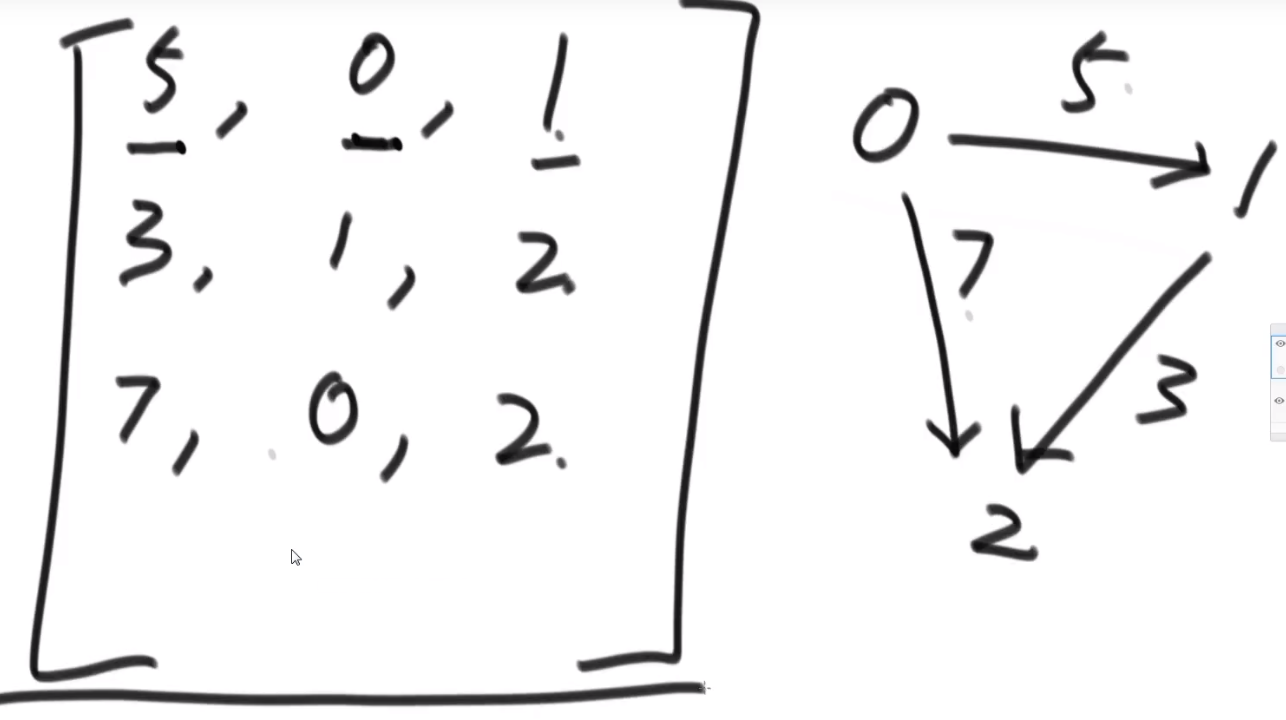 5, 0, 1
3, 1, 2
7, 0, 2
0 5 1
7 3
2